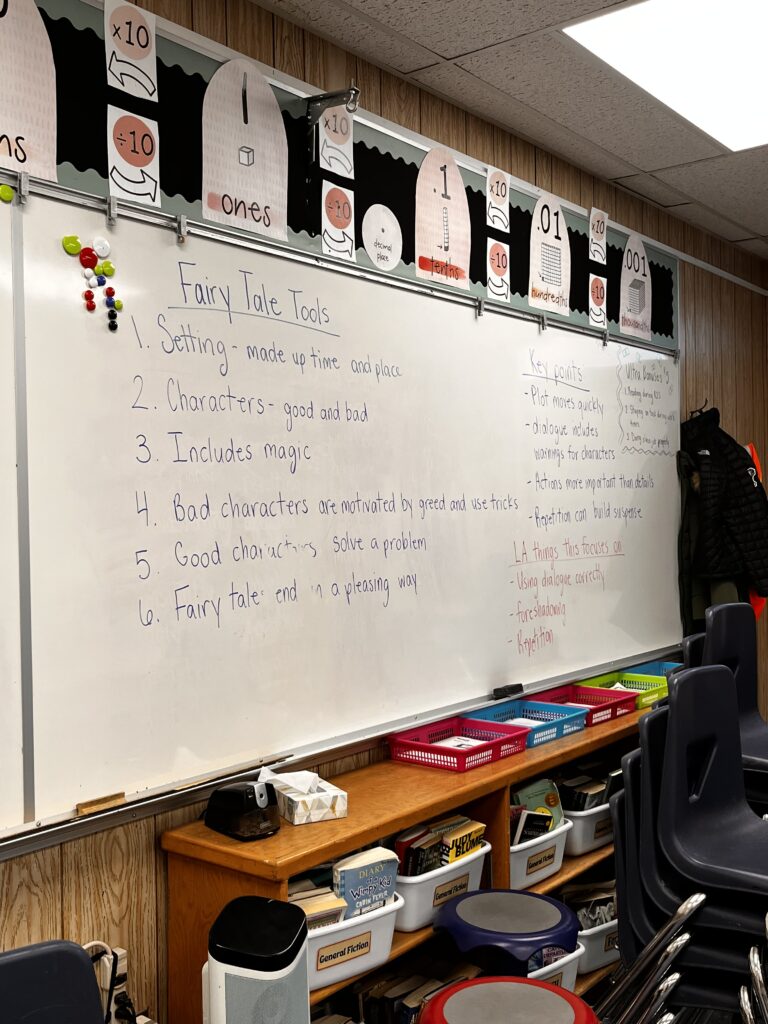 ×10
÷10
ns
ones
×10
÷10
decimal
place
.1
tenths
×10
÷10
.01
hundredths
×10
÷10
.001
thousandths
Fairy Tale Tools
1. Setting - made up time and place
2. Characters - good and bad
3. Includes magic
4. Bad characters are motivated by greed and use tricks
5. Good characters solve a problem
6. Fairy tales end in a pleasing way
Key points
- Plot moves quickly
- dialogue includes
warnings for characters
- Actions more important than details
- Repetition can build suspense
LA things this focuses on
- Using dialogue correctly
- foreshadowing
- Repetition
1. Reading during
2. Staying on task during work
times
3. Doing
DIARY
of a
Wimpy Kid
JUDY
BLUME
General Fiction
General Fiction
General Fiction